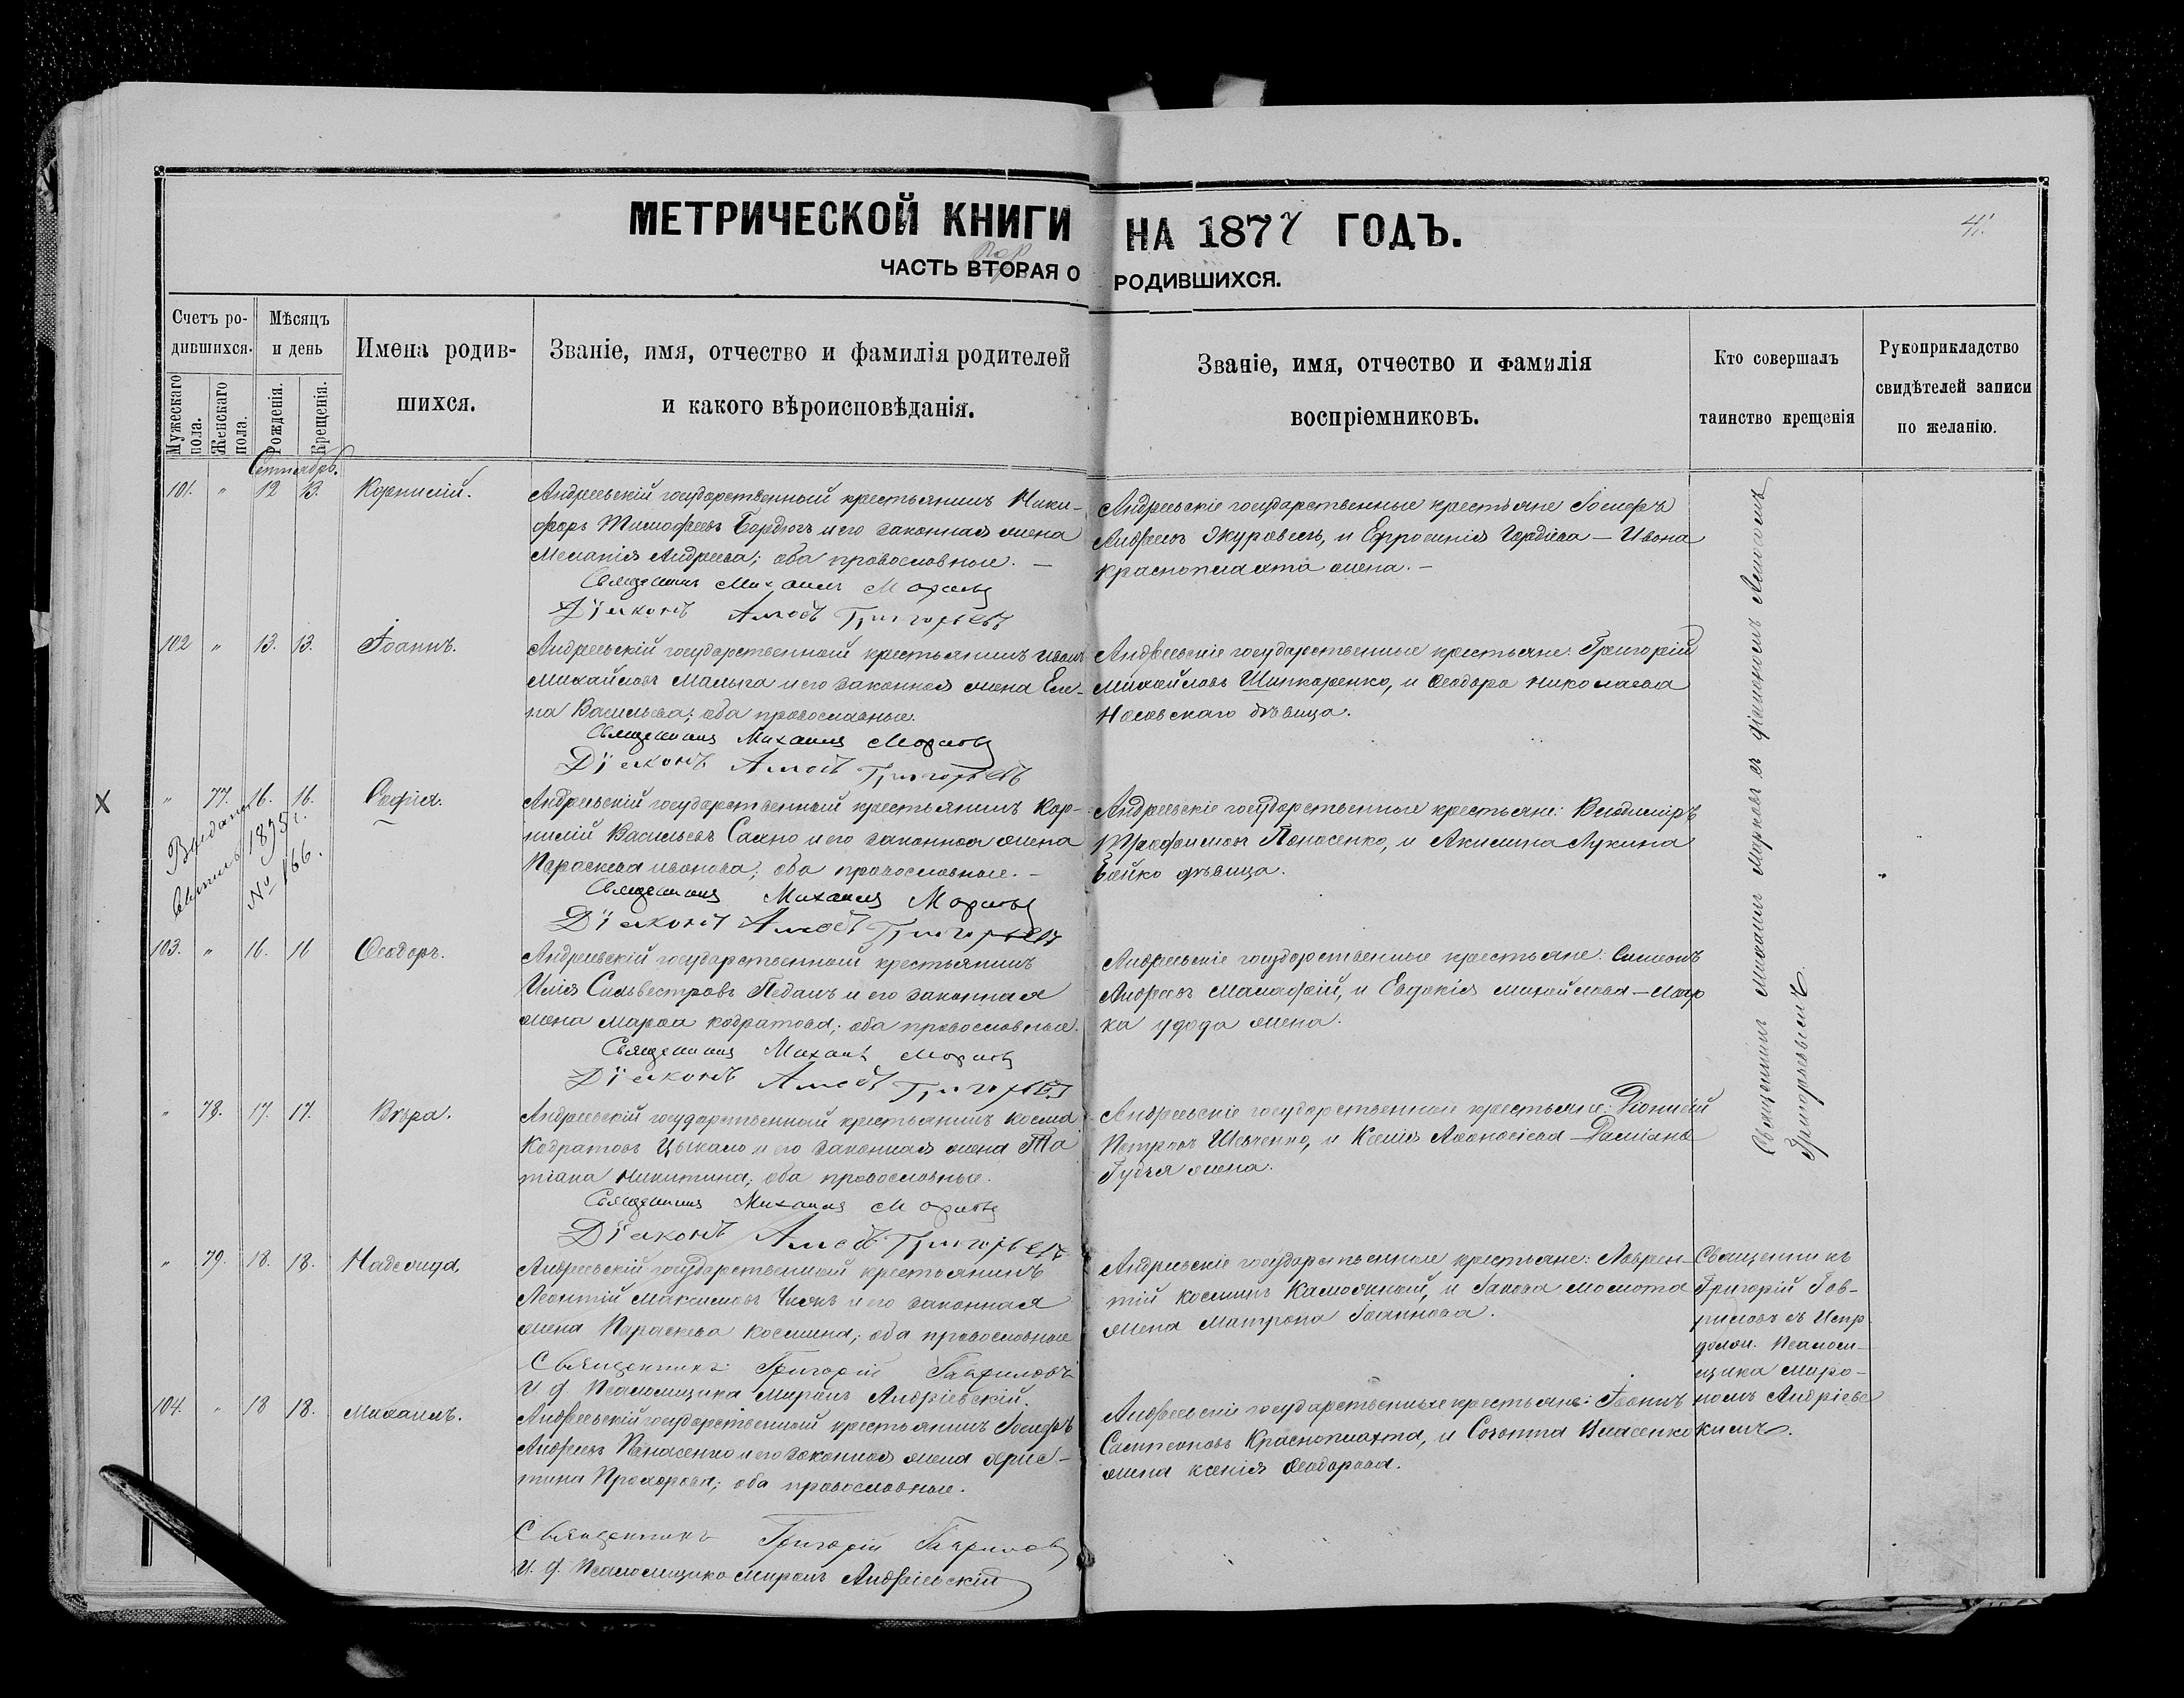 МЕТРИЧЕСКОЙ КНИГИ НА 1877 ГОДЪ.
41.
ЧАСТЬ ВТОРАЯ О РОДИВШИХСЯ.
Счетъ ро-
дившихся.
Мужескаго пола.
Женскаго пола.
Мѣсяцъ
и день
Рожденія.
Крещенія.
Имена родив-
шихся.
Званіе, имя, отчество и фамилія родителей
и какого вѣроисповѣданія.
Званіе, имя, отчество и фамилія
воспріемниковъ.
Кто совершалъ
таинство крещенія
Рукоприкладство
свидѣтелей записи
по желанію.
Сентябрь.
101. " 12 13. Корнилій.
Андреевскій государственный крестьянинъ Ники-
форъ Тимофеевъ Бордюгъ и его законная жена
Меланія Андреева; оба православные. —
Священникъ Михаилъ
Діаконъ Амосъ Григорьевъ
Андреевскіе государственные крестьяне Іосифъ
Андреевъ и Ефросинія Гордіева — Ивана
Красноплахта жена. —
102 " 13. 13. Іоаннъ.
Андреевскій государственный крестьянинъ Иванъ
Михайловъ Малыга и его законная жена Еле-
на Васильева; оба православные.
Священникъ Михаилъ
Діаконъ Амосъ Григорьевъ
Андреевскіе государственные крестьяне: Григорій
Михайловъ Шинкаренко, и Ѳеодора Николаева
Носовскаго дѣвица.
X
" 77. 16. 16. Софія.
Выдано
1895 г.
№ 166.
Андреевскій государственный крестьянинъ Кор-
нилій Васильевъ и его законная жена
Параскева Иванова; оба православные. —
Священникъ Михаилъ
Діаконъ Амосъ Григорьевъ
Андреевскіе государственные крестьяне: Владиміръ
Трофимовъ Панасенко, и Акилина Лукина
Бойко дѣвица.
103. " 16. 16 Ѳеодоръ.
Андреевскій государственный крестьянинъ
Илія Сильвестровъ Педанъ и его законная
жена Марѳа Кодратова; оба православные.
Священникъ Михаилъ
Діаконъ Амосъ Григорьевъ
Андреевскіе государственные крестьяне: Симеонъ
Андреевъ Малафій, и Евдокія Михайлова — Мар
ка Удода жена.
" 78. 17. 17. Вѣра.
Андреевскій государственный крестьянинъ Косма
Кодратовъ Цыкало и его законная жена Та
тіана Никитина; оба православные.
Священникъ Михаилъ
Діаконъ Амосъ Григорьевъ
Андреевскіе государственные крестьяне: Діонисій
Петровъ Шевченко, и Ксенія Аѳанасіева — Даміана
жена.
Священникъ Михаилъ съ діакономъ Амосомъ
Григорьевымъ
" 79. 18. 18. Надежда
Андреевскій государственный крестьянинъ
Леонтій Максимовъ и его законная
жена Параскева Космина; оба православные
Священникъ Григорій Гавриловъ
И. д. Псаломщика Миронъ Андріевскій.
Андреевскіе государственные крестьяне: Лаврен-
тій Косминъ и Іакова Момота
жена Матрона Іоаннова.
Священникъ
Григорій Гав-
риловъ съ Испр.
долж. Псаломщ-
щика Миро-
номъ Андріевс
кимъ.
104. " 18 18. Михаилъ.
Андреевскій государственный крестьянинъ Іосифъ
Андреевъ Панасенко и его законная жена Хрис-
тина Прохорова; оба православные.
Священникъ Григорій Гавриловъ
И. д. Псаломщика Миронъ Андріевскій
Андреевскіе государственные крестьяне: Іоаннъ
Сампсоновъ Красноплахта, и Созонта Власенко
жена Ксенія Ѳеодорова.